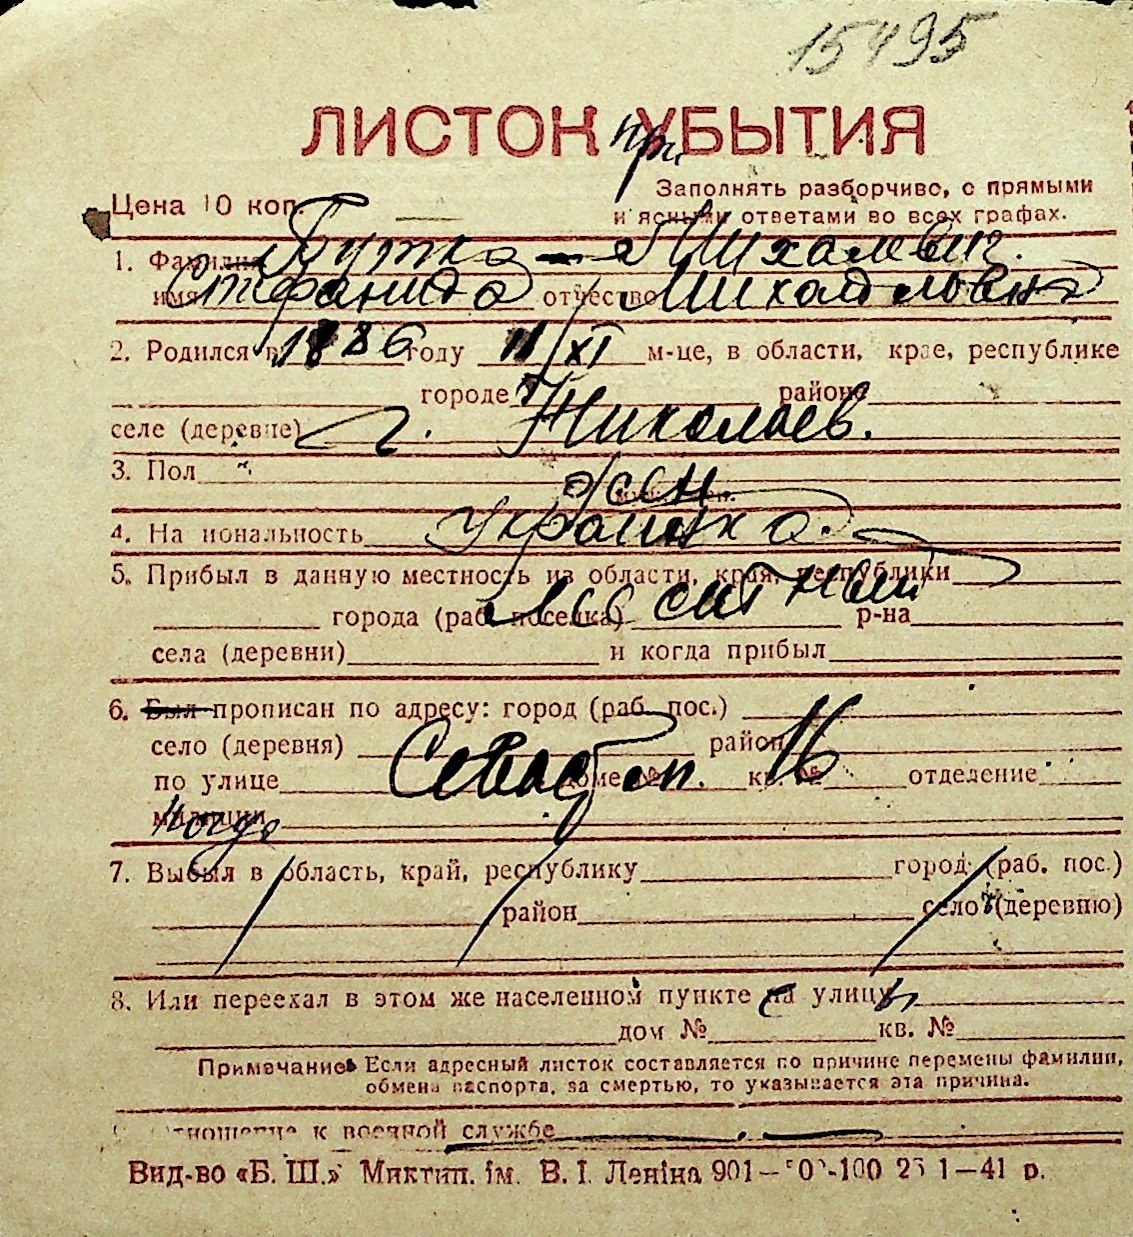 15495
ЛИСТОК УБЫТИЯ
при
Цена 10 коп.
Заполнять разборчиво, с прямыми
и ясными ответами во всех графах.
1. Фамилия Бутко - Михалевич.
имя Стефанида отчество Михайловна
2. Родился в 1886 году 11/XI м-це, в области, крае, республике
городе районе
селе (деревне) г. Николаев.
3. Пол жен
4. Национальность украинка.
5. Прибыл в данную местность из области, края, республики
местный
города (раб. поселка) р-на
села (деревни) и когда прибыл
6. Был прописан по адресу: город (раб. пос.)
село (деревня) район
Севастоп. 16
по улице доме № кв. № отделение
милиции
7. Выбыл в область, край, республику город (раб. пос.)
район село (деревню)
8. Или переехал в этом же населенном пункте на улицу
дом № кв. №
Примечание. Если адресный листок составляется по причине перемены фамилии,
обмена паспорта, за смертью, то указывается эта причина.
отношение к военной службе
Вид-во «Б. Ш.» Миктип. ім. В. І. Леніна 901— 1—41 р.